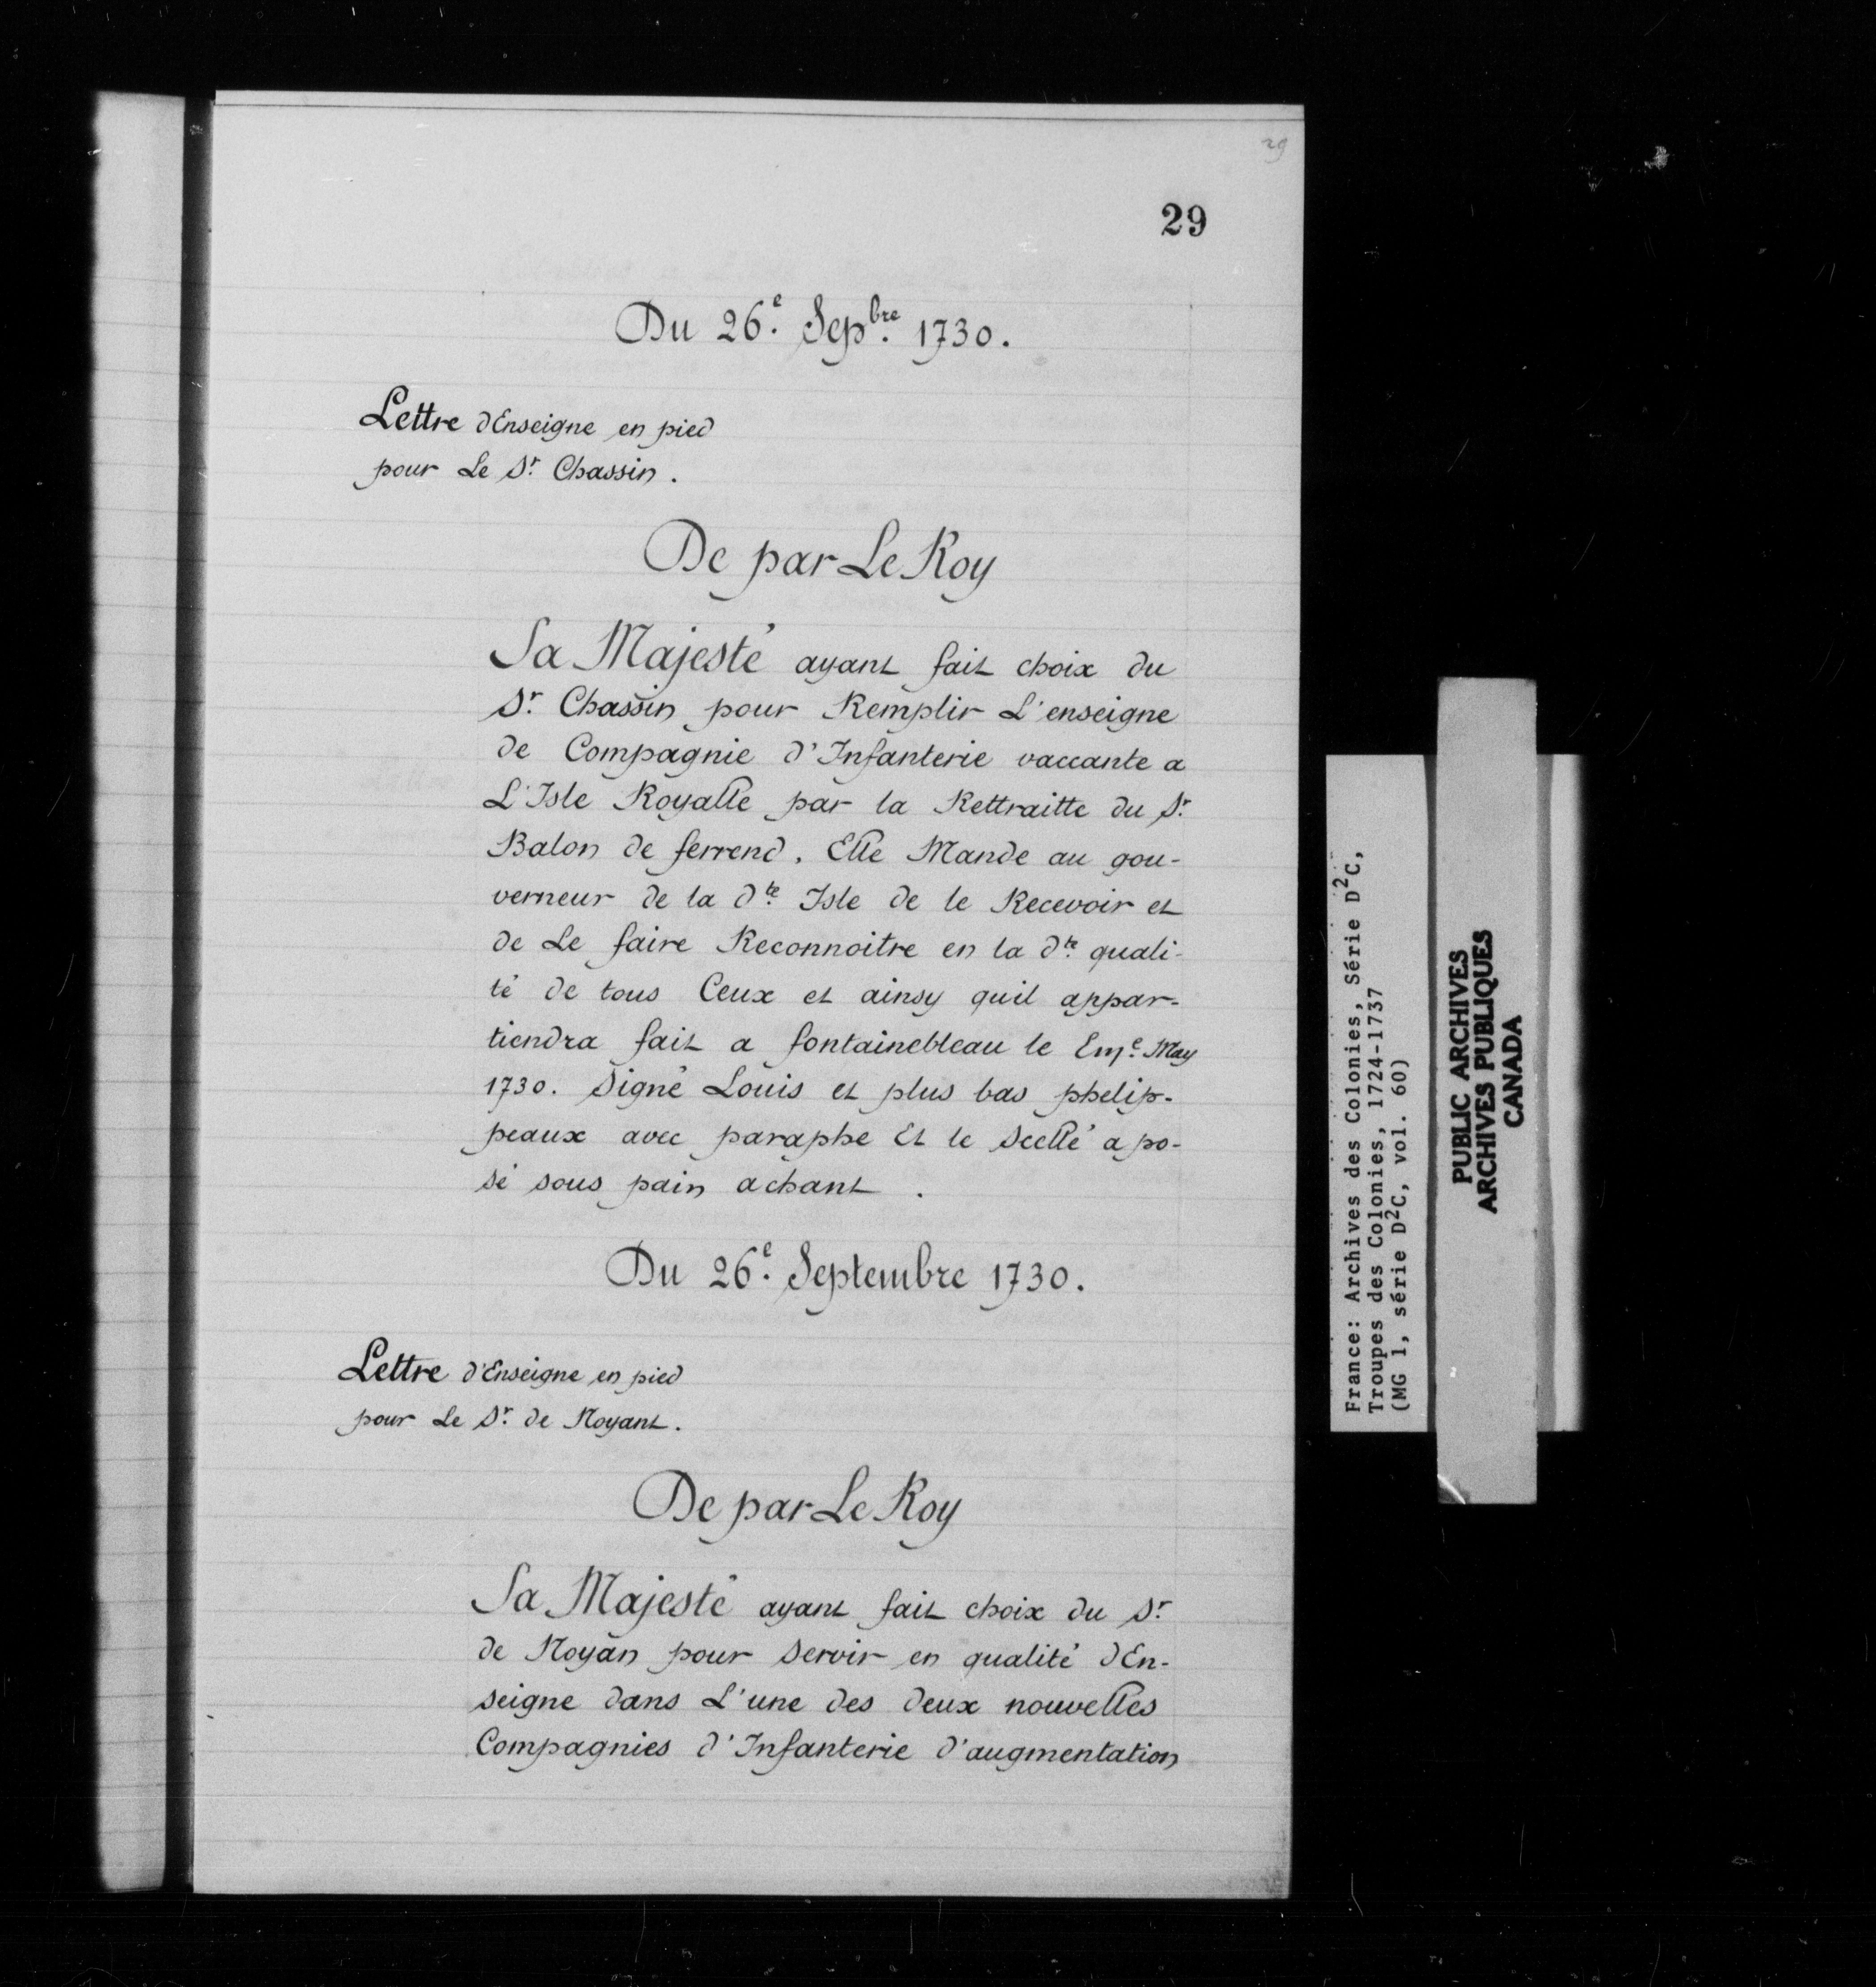 29
29
Du 26.e Sepbre. 1730.
Lettre d'Enseigne en pied
pour Le Sr. Chassin.
De par Le Roy
Sa Majesté ayant fait choix du
Sr. Chassin pour Remplir L'enseigne
de Compagnie d'Infanterie vaccante a
L'Isle Royalle par la Rettraitte du Sr.
Balon de ferrend. Elle Mande au gou-
verneur de la dte. Isle de le Recevoir et
de Le faire Reconnoitre en la dte. quali-
té de tous Ceux et ainsy quil appar-
tiendra fait a fontainebleau le Eme. May
1730. Signé Louis et plus bas phelip-
peaux avec paraphe Et le Scellé apo-
sé sous pain achant.
Du 26.e Septembre 1730.
Lettre d'Enseigne en pied
pour Le Sr. de Noyant.
De par Le Roy
Sa Majesté ayant fait choix du Sr.
de Noyan pour Servir en qualité dEn-
seigne dans L'une des deux nouvelles
Compagnies d'Infanterie d'augmentation
France: Archives des Colonies, Série D²C,
Troupes des Colonies, 1724-1737
(MG 1, série D²C, vol. 60)
PUBLIC ARCHIVES
ARCHIVES PUBLIQUES
CANADA